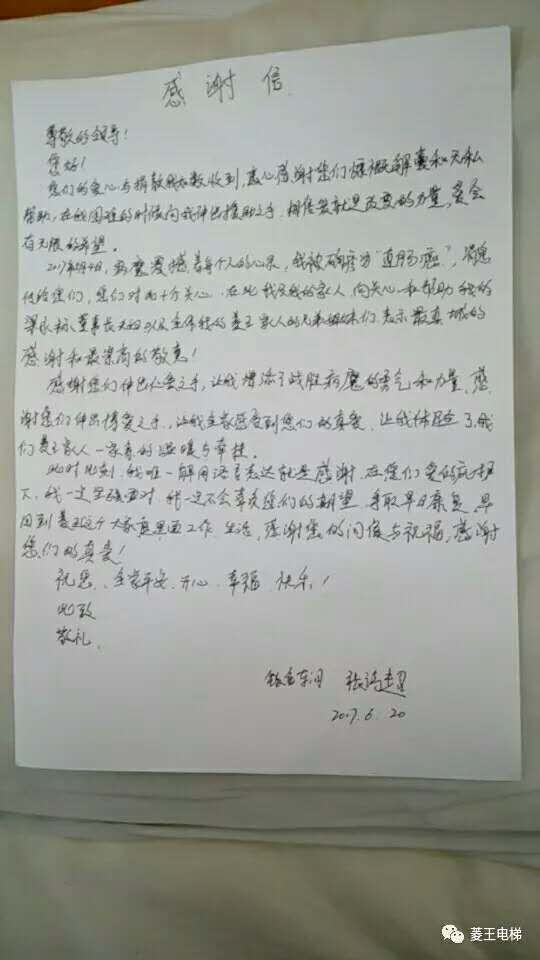 感谢信
尊敬的领导！
您好！
您们的爱心与捐款我如数收到，衷心感谢您们慷慨解囊和无私
帮助，在我困难的时候向我伸出援助之手，相信爱就是改变的力量，爱会
有无限的希望。
2017年 月 日，病魔震撼着每个人的心灵，我被确诊为"直肠癌"，消息
传给您们，您们对此十分关心。在此我及我的家人，向关心和帮助我的
梁 董事长夫妇以及全体我的菱王家人的兄弟姐妹们表示最真诚的
感谢和最崇高的敬意！
感谢您们伸出仁爱之手，让我增添了战胜病魔的勇气和力量，感
谢您们伸出情爱之手，让我全家感受到您们的真爱，让我体验了我
们菱王家人一家亲的温暖与幸福。
此时此刻，我唯一能用语言表达就是感谢，在您们爱的旗帜
下，我一定坚强面对，我一定不会辜负您们的期望，争取早日康复，早
回到菱王这个大家庭里面工作、生活，感谢您的问候与祝福，感谢
您们的真爱！
祝您、全家平安、开心、幸福、快乐！
此致
敬礼
钣金车间 张
2017.6.20
菱王电梯